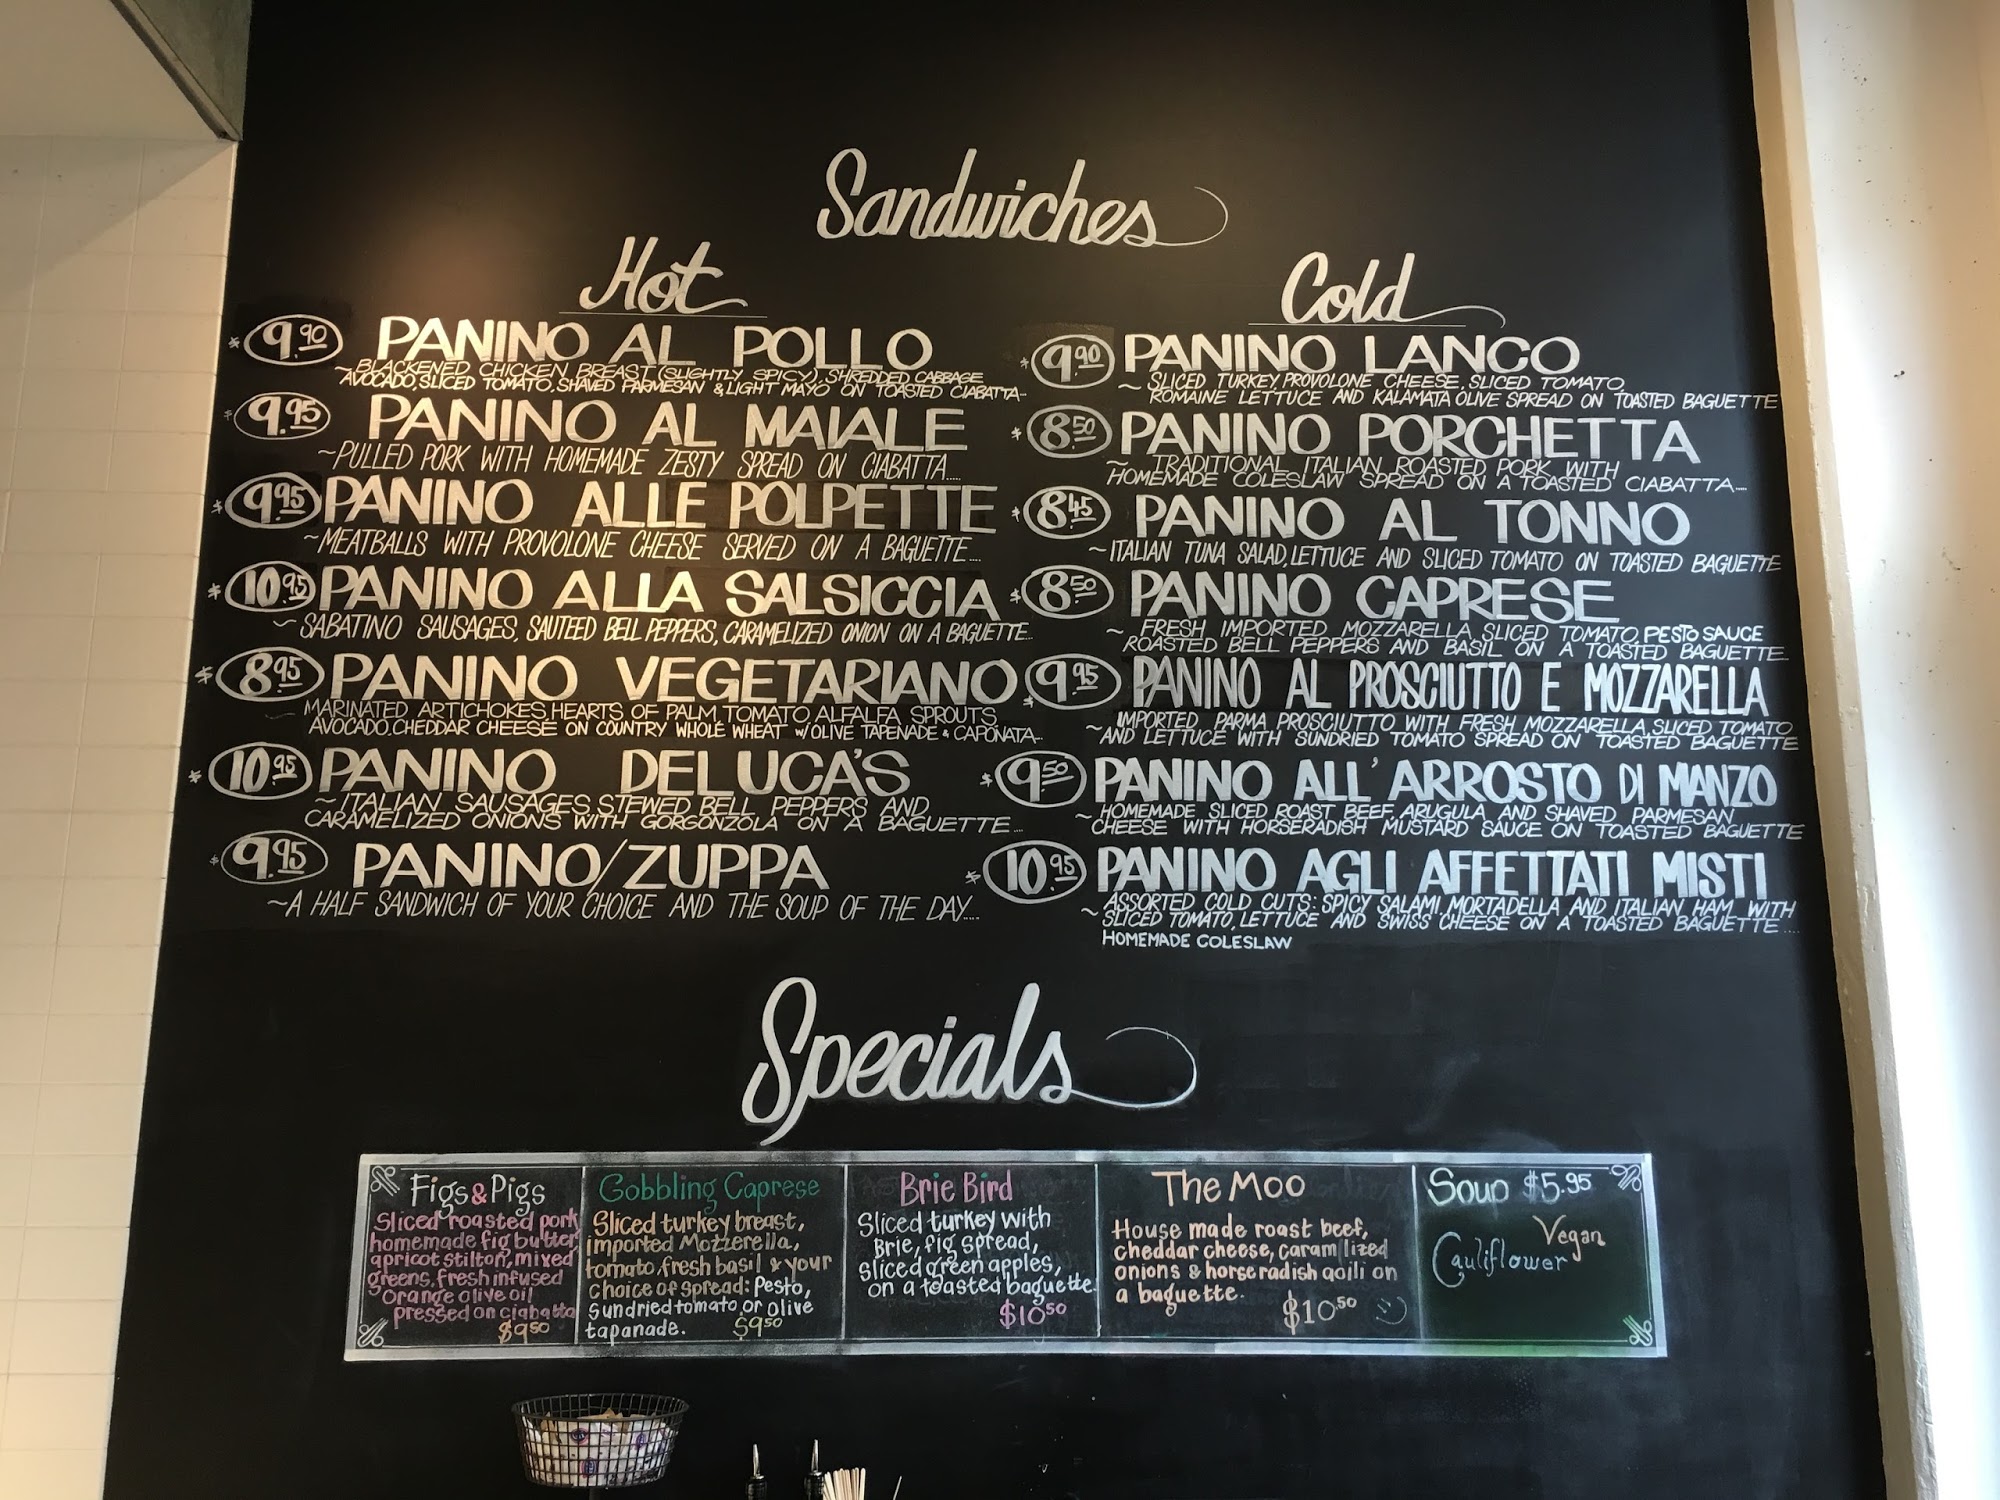 Sandwiches
Hot
$9.90 PANINO AL POLLO
~BLACKENED CHICKEN BREAST (SLIGHTLY SPICY), SHREDDED CABBAGE
AVOCADO, SLICED TOMATO, SHAVED PARMESAN & LIGHT MAYO ON TOASTED CIABATTA...
$9.95 PANINO AL MAIALE
~PULLED PORK WITH HOMEMADE ZESTY SPREAD ON CIABATTA.....
$9.95 PANINO ALLE POLPETTE
~MEATBALLS WITH PROVOLONE CHEESE SERVED ON A BAGUETTE....
$10.95 PANINO ALLA SALSICCIA
~SABATINO SAUSAGES, SAUTEED BELL PEPPERS, CARAMELIZED ONION ON A BAGUETTE...
$8.95 PANINO VEGETARIANO
~MARINATED ARTICHOKES, HEARTS OF PALM, TOMATO, ALFALFA SPROUTS,
AVOCADO, CHEDDAR CHEESE ON COUNTRY WHOLE WHEAT W/OLIVE TAPENADE & CAPONATA...
$10.95 PANINO DELUCA'S
~ITALIAN SAUSAGES, STEWED BELL PEPPERS AND
CARAMELIZED ONIONS WITH GORGONZOLA ON A BAGUETTE....
$9.95 PANINO/ZUPPA
~A HALF SANDWICH OF YOUR CHOICE AND THE SOUP OF THE DAY.....
Cold
$9.90 PANINO LANCO
~SLICED TURKEY, PROVOLONE CHEESE, SLICED TOMATO,
ROMAINE LETTUCE AND KALAMATA OLIVE SPREAD ON TOASTED BAGUETTE
$8.50 PANINO PORCHETTA
~TRADITIONAL ITALIAN ROASTED PORK WITH
HOMEMADE COLESLAW SPREAD ON A TOASTED CIABATTA.....
$8.45 PANINO AL TONNO
~ITALIAN TUNA SALAD, LETTUCE AND SLICED TOMATO ON TOASTED BAGUETTE
$8.50 PANINO CAPRESE
~FRESH IMPORTED MOZZARELLA, SLICED TOMATO, PESTO SAUCE
ROASTED BELL PEPPERS AND BASIL ON A TOASTED BAGUETTE...
$9.95 PANINO AL PROSCIUTTO E MOZZARELLA
~IMPORTED PARMA PROSCIUTTO WITH FRESH MOZZARELLA, SLICED TOMATO
AND LETTUCE WITH SUNDRIED TOMATO SPREAD ON TOASTED BAGUETTE
$9.50 PANINO ALL'ARROSTO DI MANZO
~HOMEMADE SLICED ROAST BEEF, ARUGULA AND SHAVED PARMESAN
CHEESE WITH HORSERADISH MUSTARD SAUCE ON TOASTED BAGUETTE
$10.95 PANINO AGLI AFFETTATI MISTI
~ASSORTED COLD CUTS: SPICY SALAMI, MORTADELLA AND ITALIAN HAM WITH
SLICED TOMATO, LETTUCE AND SWISS CHEESE ON A TOASTED BAGUETTE.....
HOMEMADE COLESLAW
Specials
Figs & Pigs
Sliced roasted pork
homemade fig butter
apricot stilton, mixed
greens, fresh infused
orange olive oil
pressed on ciabatta
$9.50
Gobbling Caprese
Sliced turkey breast,
imported Mozzerella,
tomato, fresh basil & your
choice of spread: Pesto,
sundried tomato, or olive
tapanade. $9.50
Brie Bird
Sliced turkey with
Brie, fig spread,
sliced green apples,
on a toasted baguette
$10.50
The Moo
House made roast beef,
cheddar cheese, caram lized
onions & horseradish aoili on
a baguette.
$10.50
Soup $5.95
Vegan
Cauliflower